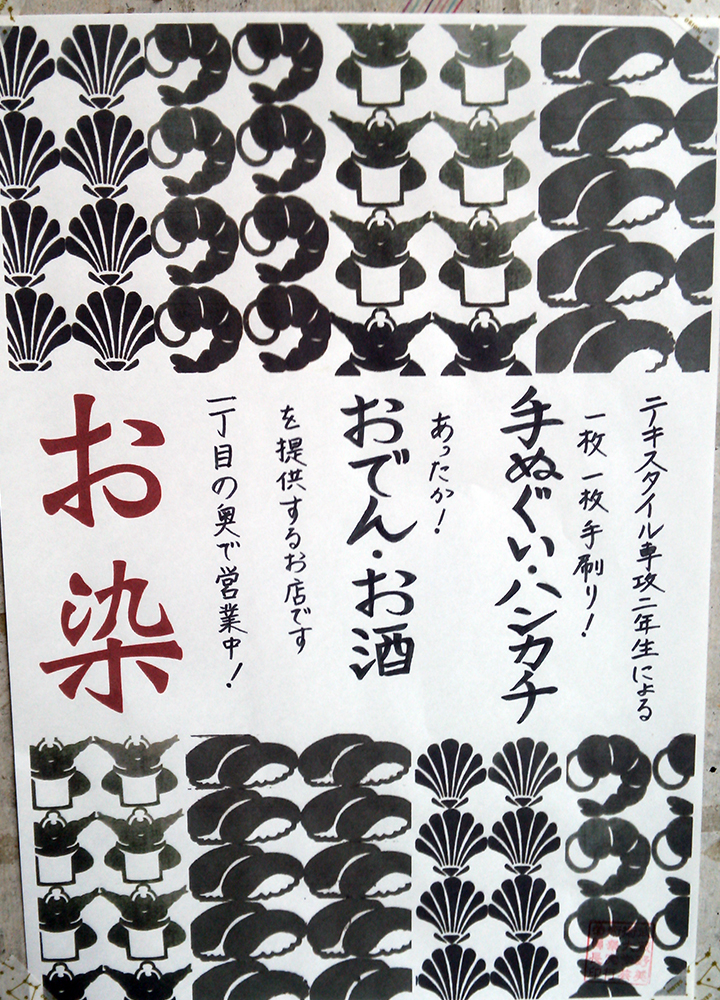 テキスタイル専攻二年生による
一枚一枚手刷り!
手ぬぐい・ハンカチ
あったか!
おでん・お酒
を提供するお店です
一丁目の奥で営業中!
お染